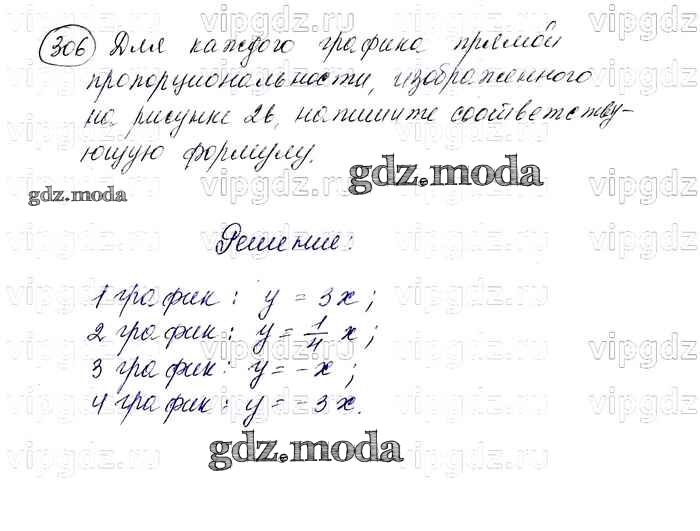 306 Для каждого графика прямой
пропорциональности, изображенного
на рисунке 26, напишите соответству-
ющую формулу.
gdz.moda
gdz.moda
Решение:
1 график: y = 3x;
2 график: y = 1/4 x;
3 график: y = -x;
4 график: y = -3x.
gdz.moda
vipgdz.ru